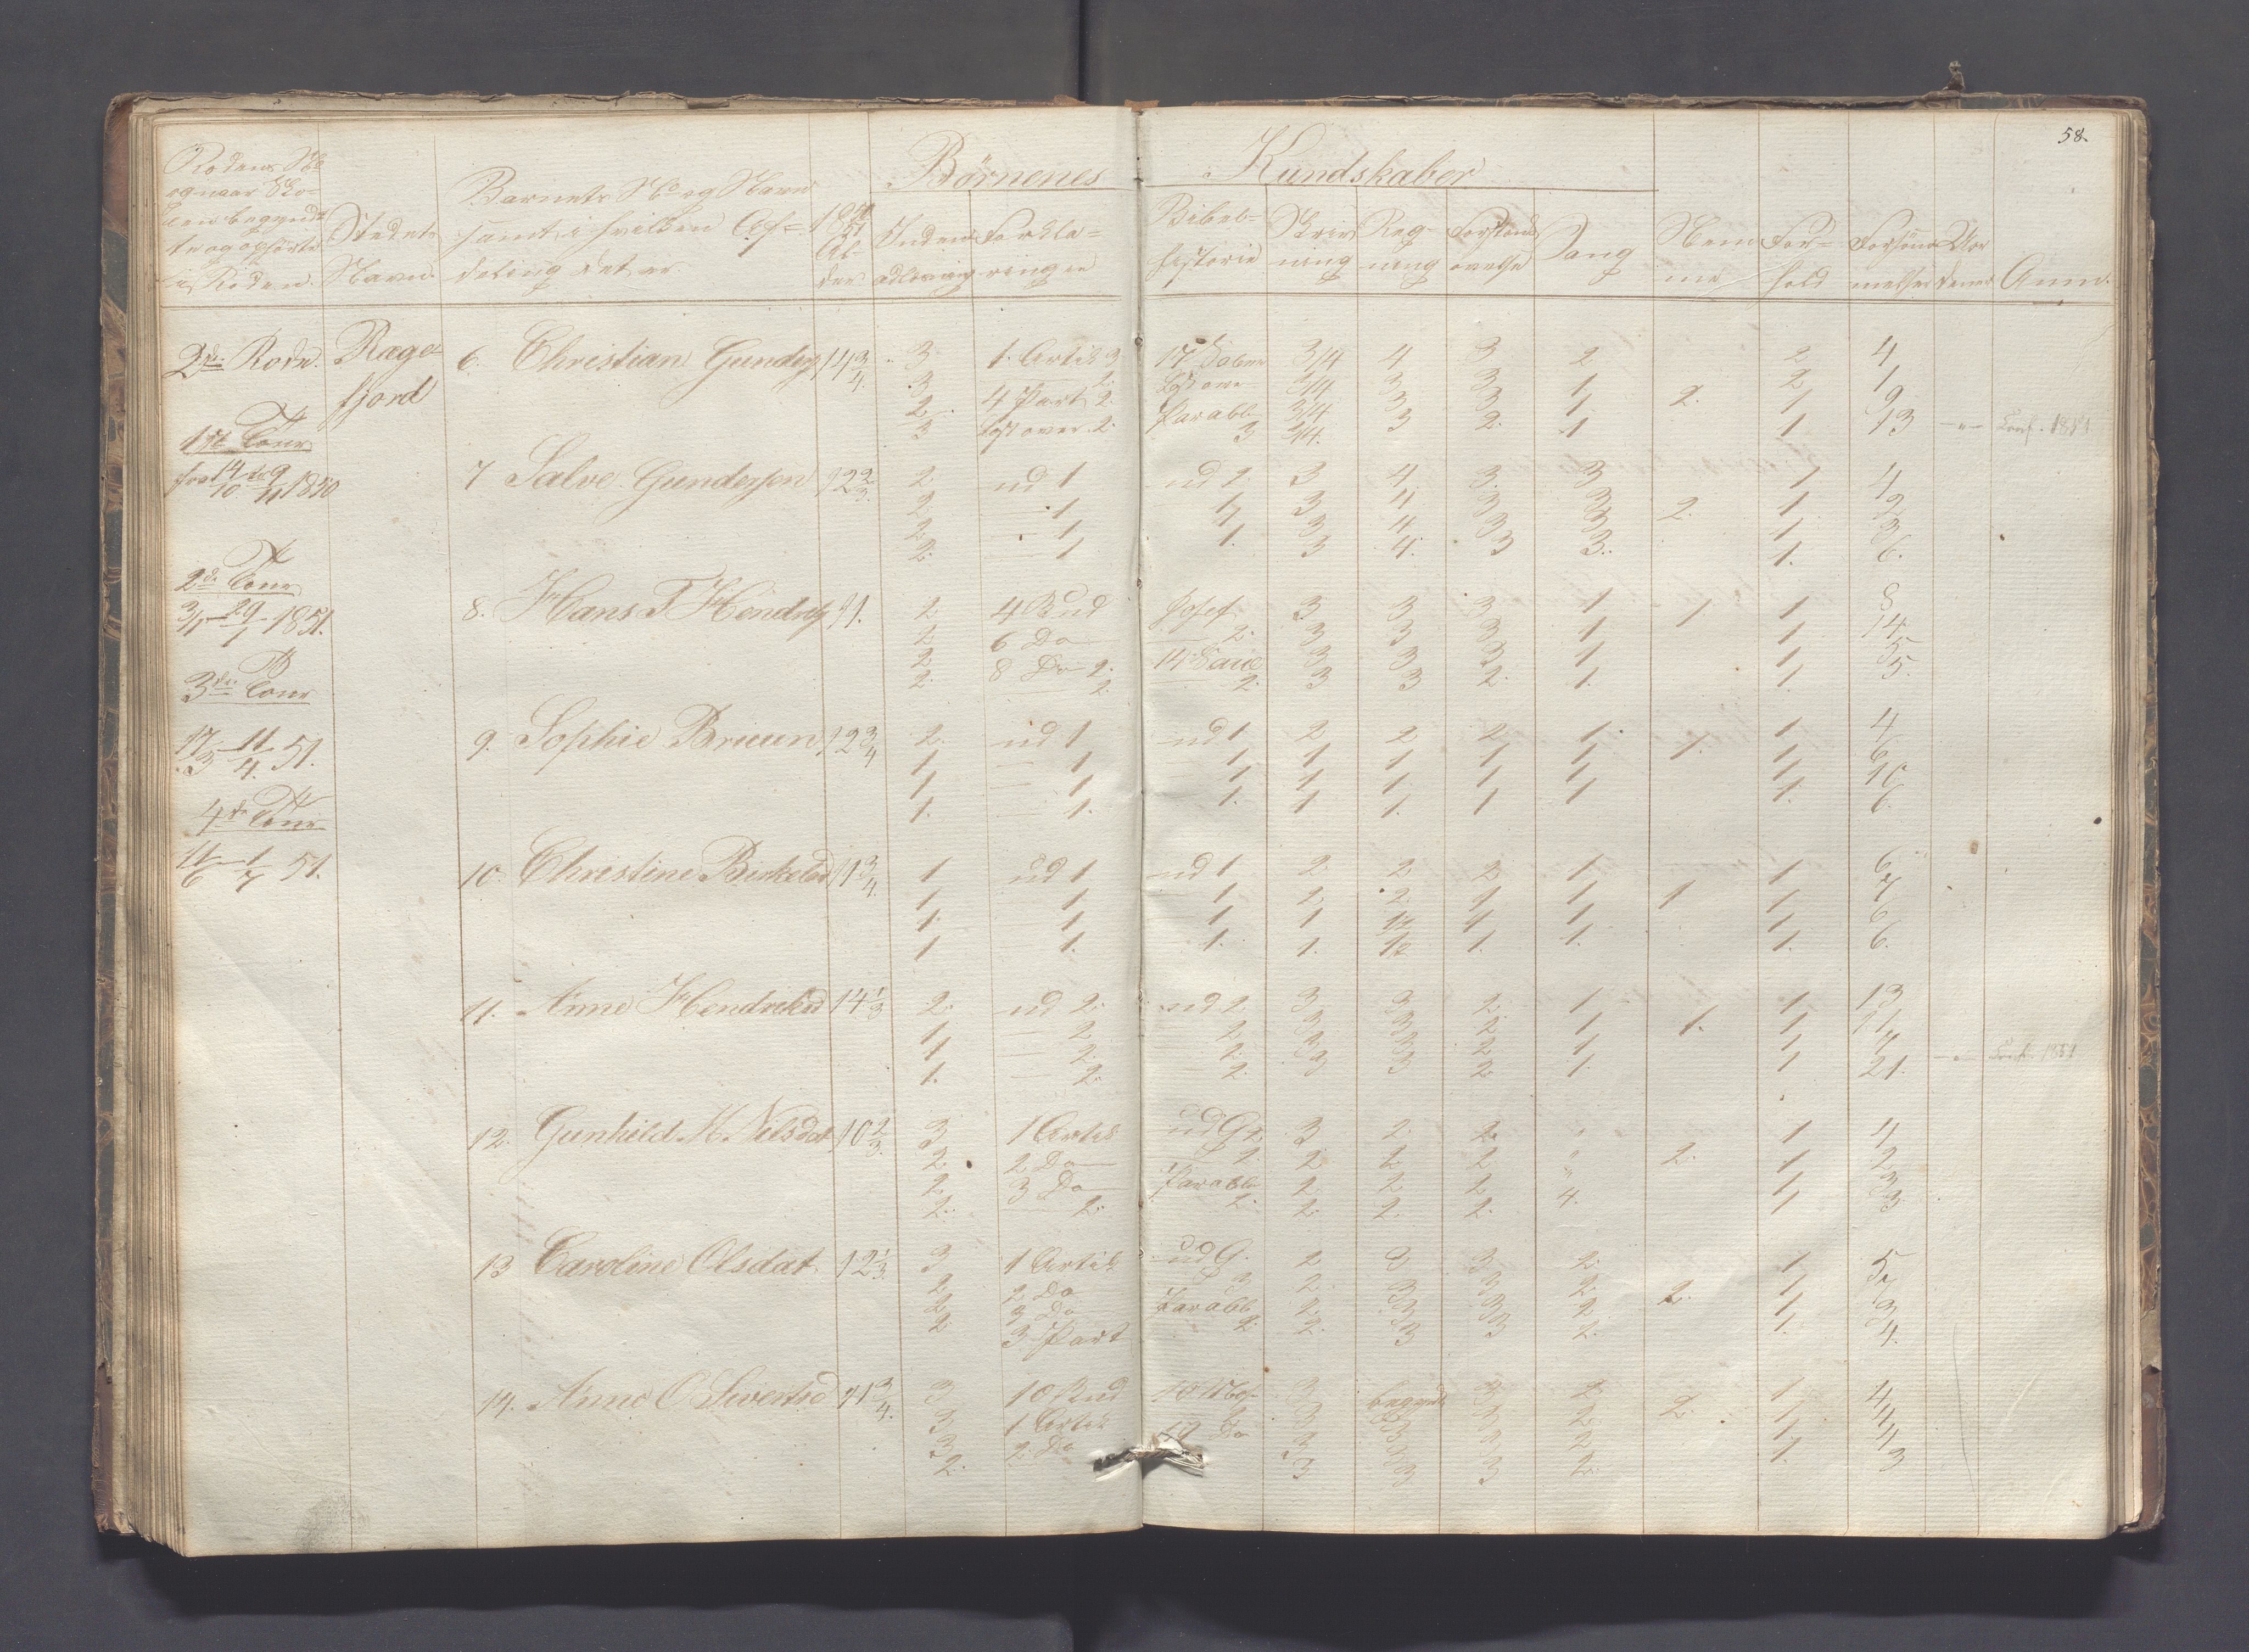 58.
Børnenes Kundskaber
Rodens No
og naar Sko-
len begyndt
te og ophørte
i Roden.
Stedets
Navn.
Barnets No og Navn
samt i hvilken Af-
deling det er
1850/51
Al-
der
Inden-
adlæsning
Forkla-
ringen
Bibel-
historie
Skriv
ning
Reg-
ning
Forstands
øvelse
Sang
Nem
me
For-
hold
Forsøm
melser
Anm.
2den Rode.Ræge- 6. Christian Gunders 14 3/4. 3 1. Artik 3 17 3/4 4 3 2 2 4
fjord 3 3/4 3 3 1. 2 1
2. 4 Part 2. Parabl 3/4 3 3 1 2. 1 9
3 Lost over 2. 3 3/4. 3 2. 1 1. 13 Conf. 1851
1ste Tour
fra 14/10 til 9/11 1850 7 Salve Gundersen 12 2/3. 2 ud 1 ud 2. 3 4 3. 3 1 4
2 1 1 3 4 3 3 2. 1 2
2. 1 1 3 4. 3 3 1 3
2. 1 1. 3 4. 3 3. 1. 6.
2de Tour
3/1 - 29/1 1851. 8. Hans T. Hendrs 11. 2 4 Bud Josef 3 3 3 1 1 1 8
2 6 Do 2. 3 3 3 1 1 14
2 8 Do 2. 14 3 3 3 1 1 5
2. 2. 2. 3 3 2. 1. 1. 5.
3die Tour
17/3 - 11/4. 51. 9. Sophie Bruun 12 3/4 2. ud 1 ud 1 2 2 2 1. 1. 1 4
1 1 1 1 1 1 1 1 6
1 1 1 1 1 1 1 1 10
1. 1. 1. 1 1. 1 1 1. 6.
4de Tour
11/6 - 1/7 51. 10. Christine Birkeland 11 3/4. 1 ud 1 ud 1 2 2 2 1 1 6
1 1 1 2 2 1 1 1 1 7
1 1 1 1 1 1 1 6
1 1. 1. 1. 1. 1. 1. 6.
11. Anne Hendriksd 14 1/3 2. ud 2. ud 2 3 3 2. 1 1 13
1 2 2 3 3 2 1 1. 1 11
1 2. 2. 3 3 2 1 1
1. 2. 2. 3 3 2 1. 1 21. Conf. 1851
12. Gunhild M. Nilsdat 10 2/3. 3 1 Artik 3 2 2. " 1 4
2 2 Do 2. 2 2 2 " 2. 1 2
2 3 Do Parabl 2 2 2 " 1 3
2. 2. 2. 2. 2. 2. 4. 1 3
13 Caroline Olsdat 12 1/3. 3 1 Artik 2 3 3 2. 1 5
2 2 Do 3 2. 3 3 2 2. 1 7
2 3 Do Parabl 2 3 3 2 1 3
2. 3 Part 2. 2. 3 3 2. 1. 4.
14. Anne O Sivertsd 11 3/4. 3 10 Bud 3 begynt 3 2 1 4
3 1 Artik 3 3 3 2 2. 1 4
3 2 Do 19 Do 3 3 3 2 1 4
2. 3 3 3 2. 1. 3